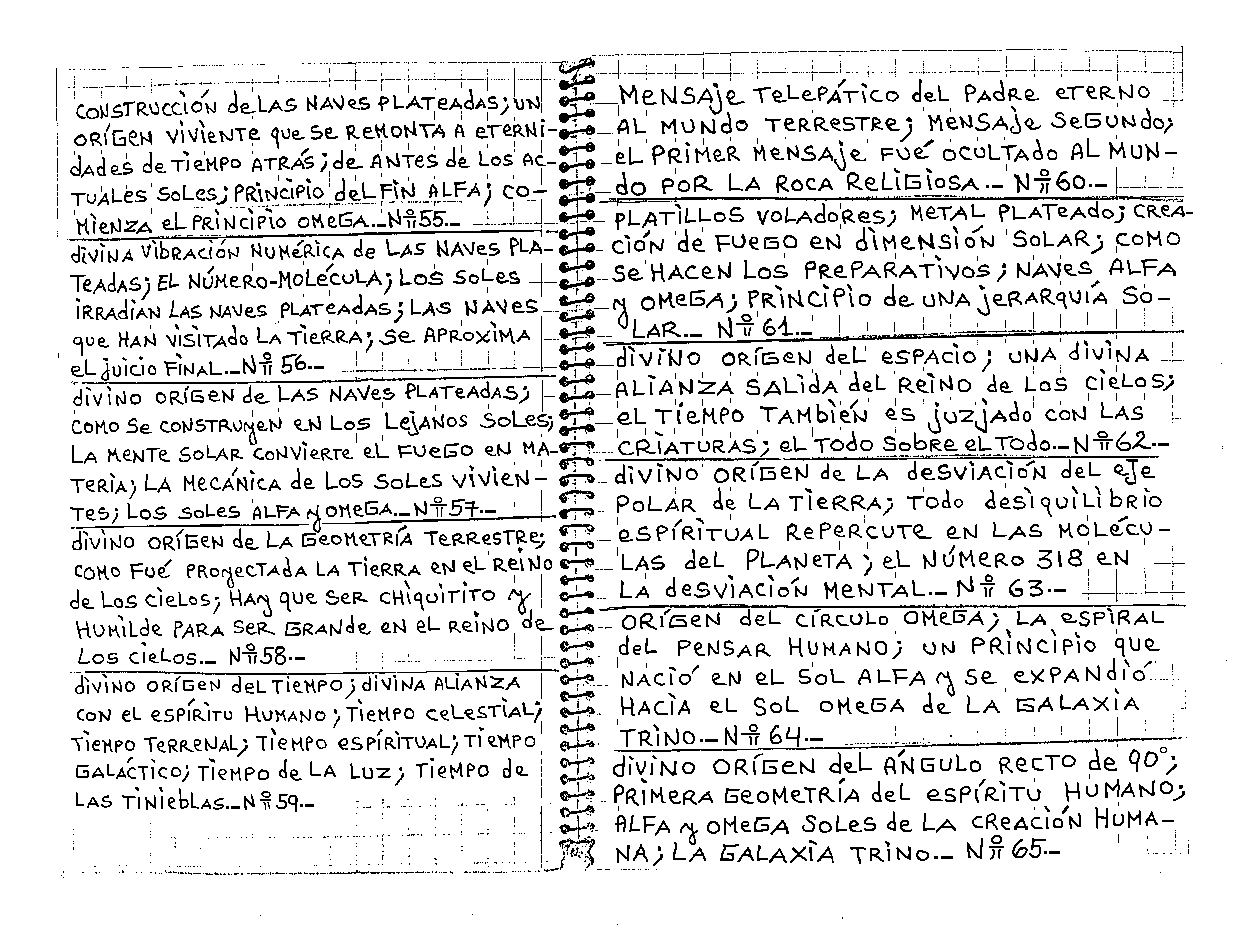 CONSTRUCCIÓN de LAS NAVES PLATEADAS; UN
ORÍGEN VIVIENTE que SE REMONTA A ETERNI-
dAdES de TIEMPO ATRÁS; de ANTES de LOS AC-
TUALES SOLES; PRINCIPIO del FIN ALFA; CO-
MIENZA el PRINCIPIO OMEGA.._Nº55.._
diVINA VIBRACIÓN NUMÉRICA de LAS NAVES PLA-
TEADAS; EL NÚMERO-MOLÉCULA; LOS SOLES
IRRADIAN LAS NAVES PLATEADAS; LAS NAVES
que HAN VISITADO LA TIERRA; SE APROXIMA
el juicio FINAL.._Nº 56.._
diVINO ORÍGEN de LAS NAVES PLATEADAS;
COMO SE CONSTRUYEN EN LOS LEJANOS SOLES;
LA MENTE SOLAR CONVIERTE EL FUEGO EN MA-
TERIA; LA MECÁNICA de LOS SOLES VIVIEN-
TES; LOS SOLES ALFA y OMEGA.._Nº57.._
diVINO ORÍGEN de LA GEOMETRÍA TERRESTRE;
COMO FUÉ PROYECTADA LA TIERRA EN EL REINO
de LOS CIELOS; HAY que SER CHIQUITITO y
HUMILDE PARA SER GRANDE EN EL REINO de
LOS CIELOS.._ Nº58.._
diVINO ORÍGEN del TIEMPO; diVINA ALIANZA
CON EL ESPÍRITU HUMANO; TIEMPO CELESTIAL;
TIEMPO TERRENAL; TIEMPO ESPÍRITUAL; TIEMPO
GALÁCTICO; TIEMPO de LA LUZ; TIEMPO de
LAS TINIEBLAS.._Nº59.._
MENSAJE TELEPÁTICO del PADRE ETERNO
AL MUNDO TERRESTRE; MENSAJE SEGUNDO;
EL PRIMER MENSAJE FUÉ OCULTADO AL MUN-
do POR LA ROCA RELIGIOSA.._ Nº60.._
PLATILLOS VOLADORES; METAL PLATEADO; CREA-
CIÓN de FUEGO EN diMENSIÓN SOLAR; COMO
SE HACEN LOS PREPARATIVOS; NAVES ALFA
y OMEGA; PRINCIPIO de UNA jERARQUÍA SO-
LAR.._ Nº 61.._
diVINO ORÍGEN del ESPACIO; UNA diVINA
ALIANZA SALIDA del REINO de LOS CIELOS;
EL TIEMPO TAMBIÉN ES juzjado CON LAS
CRIATURAS; EL TODO SOBRE EL TODO.._Nº62.._
diVINO ORÍGEN de LA deSVIACIÓN del EJE
POLAR de LA TIERRA; TODO deSIQUILIBRIO
ESPÍRITUAL REPERCUTE EN LAS MOLÉCU-
LAS del PLANETA; EL NÚMERO 318 EN
LA deSVIACIÓN MENTAL.._ Nº 63.._
ORÍGEN del CÍRCULO OMEGA; LA ESPIRAL
del PENSAR HUMANO; UN PRINCIPIO que
NACIÓ EN EL SOL ALFA y SE EXPANDIÓ
HACIA EL SOL OMEGA de LA GALAXIA
TRINO.._Nº 64.._
diVINO ORÍGEN del ÁNGULO RECTO de 90°;
PRIMERA GEOMETRÍA del ESPÍRITU HUMANO;
ALFA y OMEGA SOLES de LA CREACIÓN HUMA-
NA; LA GALAXIA TRINO.._ Nº 65.._